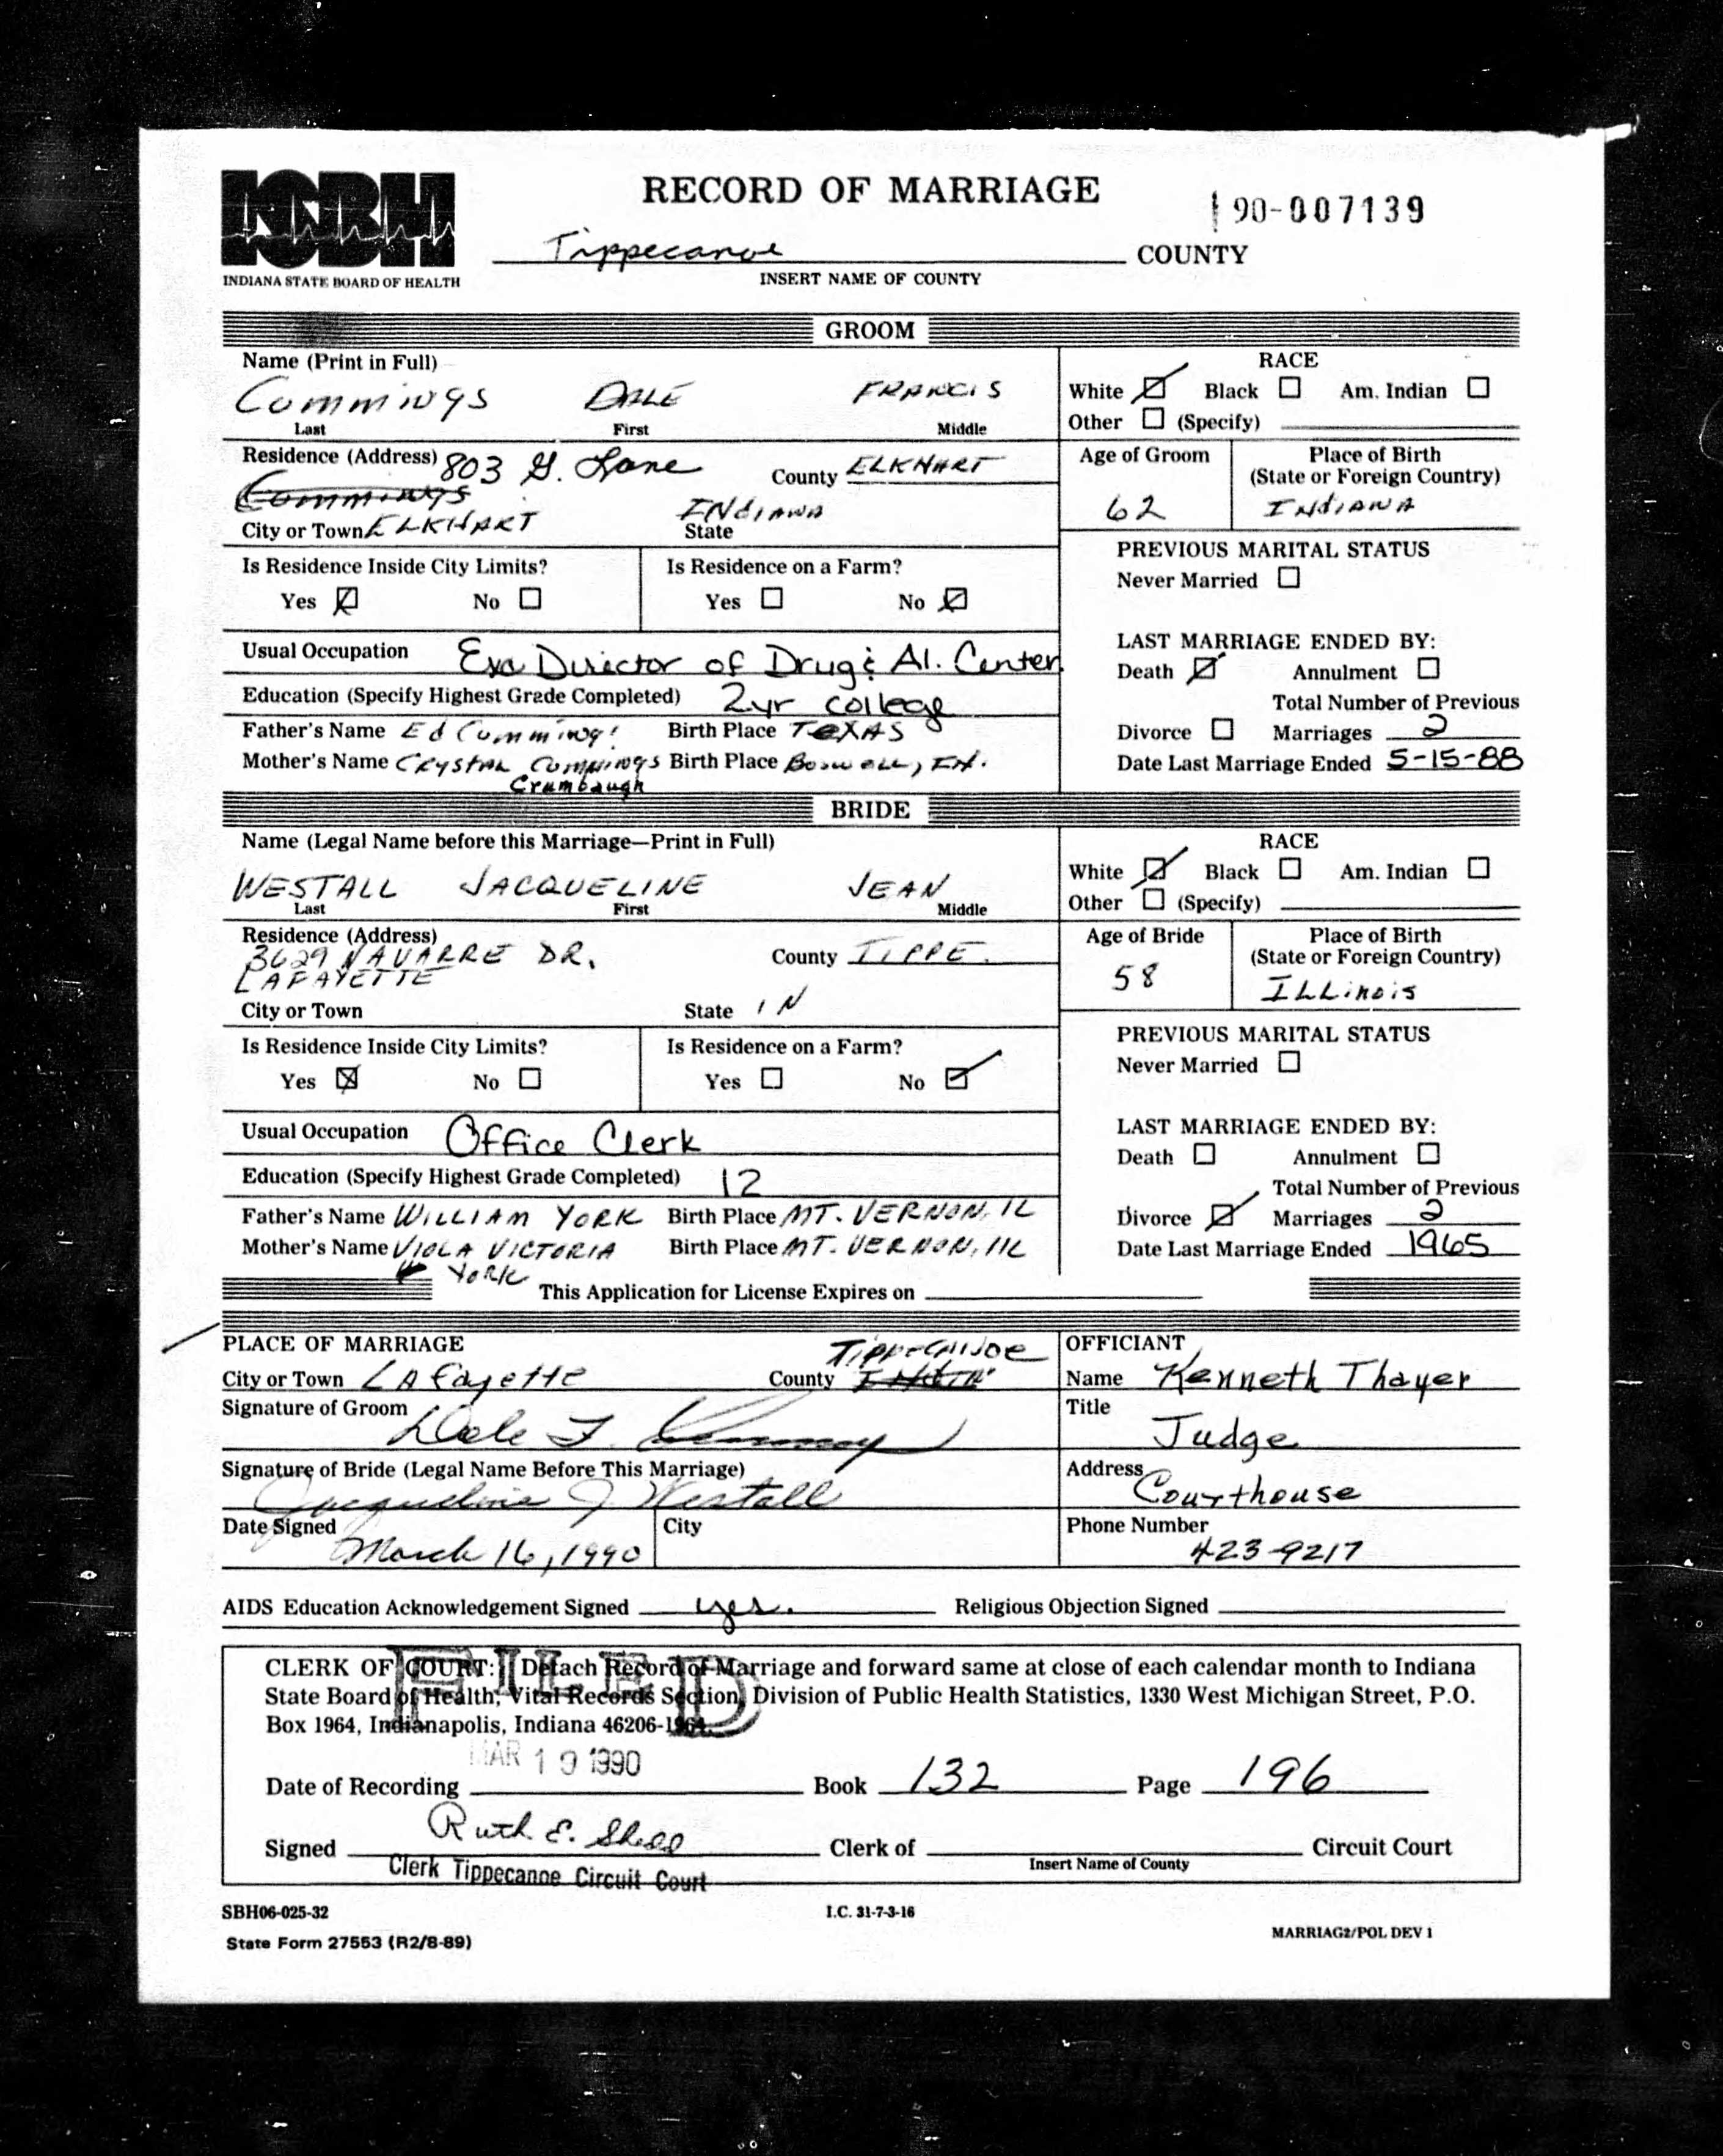 ISBH
INDIANA STATE BOARD OF HEALTH
RECORD OF MARRIAGE
90-007139
Tippecanoe COUNTY
INSERT NAME OF COUNTY
GROOM
Name (Print in Full)
Cummings DALE FRANCIS
Last First Middle
RACE
White ☑ Black ☐ Am. Indian ☐
Other ☐ (Specify)
Residence (Address) 803 G. Lane County ELKHART
Cummings
City or Town ELKHART INdIANA State
Age of Groom 62
Place of Birth
(State or Foreign Country)
INdIANA
Is Residence Inside City Limits? Is Residence on a Farm?
Yes ☑ No ☐ Yes ☐ No ☑
PREVIOUS MARITAL STATUS
Never Married ☐
Usual Occupation Exc Director of Drug & Al. Center
Education (Specify Highest Grade Completed) 2yr college
Father's Name Ed Cummings Birth Place TEXAS
Mother's Name CRYSTAL CUMMINGS Birth Place Boswell, IN.
Crumbaugh
LAST MARRIAGE ENDED BY:
Death ☑ Annulment ☐
Total Number of Previous
Divorce ☐ Marriages 2
Date Last Marriage Ended 5-15-88
BRIDE
Name (Legal Name before this Marriage—Print in Full)
WESTALL JACQUELINE JEAN
Last First Middle
RACE
White ☑ Black ☐ Am. Indian ☐
Other ☐ (Specify)
Residence (Address)
3629 NAVARRE DR. County TIPPE.
LAFAYETTE
City or Town State IN
Age of Bride 58
Place of Birth
(State or Foreign Country)
ILLinois
Is Residence Inside City Limits? Is Residence on a Farm?
Yes ☒ No ☐ Yes ☐ No ☑
PREVIOUS MARITAL STATUS
Never Married ☐
Usual Occupation Office Clerk
Education (Specify Highest Grade Completed) 12
Father's Name WILLIAM YORK Birth Place MT. VERNON, IL
Mother's Name VIOLA VICTORIA Birth Place MT. VERNON, IL
YORK
LAST MARRIAGE ENDED BY:
Death ☐ Annulment ☐
Total Number of Previous
Divorce ☑ Marriages 2
Date Last Marriage Ended 1965
This Application for License Expires on
PLACE OF MARRIAGE
City or Town LAfayette County TIPPECANOE
Signature of Groom
Dale F. Cummings
Signature of Bride (Legal Name Before This Marriage)
Jacqueline J Westall
Date Signed City
March 16, 1990
OFFICIANT
Name Kenneth Thayer
Title
Judge
Address
Courthouse
Phone Number
423-9217
AIDS Education Acknowledgement Signed yes. Religious Objection Signed
FILED
CLERK OF COURT: Detach Record of Marriage and forward same at close of each calendar month to Indiana
State Board of Health, Vital Records Section, Division of Public Health Statistics, 1330 West Michigan Street, P.O.
Box 1964, Indianapolis, Indiana 46206-1964.
MAR 19 1990
Date of Recording Book 132 Page 196
Signed Ruth E. Shedd Clerk of Circuit Court
Insert Name of County
Clerk Tippecanoe Circuit Court
SBH06-025-32 I.C. 31-7-3-16
State Form 27553 (R2/8-89) MARRIAG2/POL DEV 1